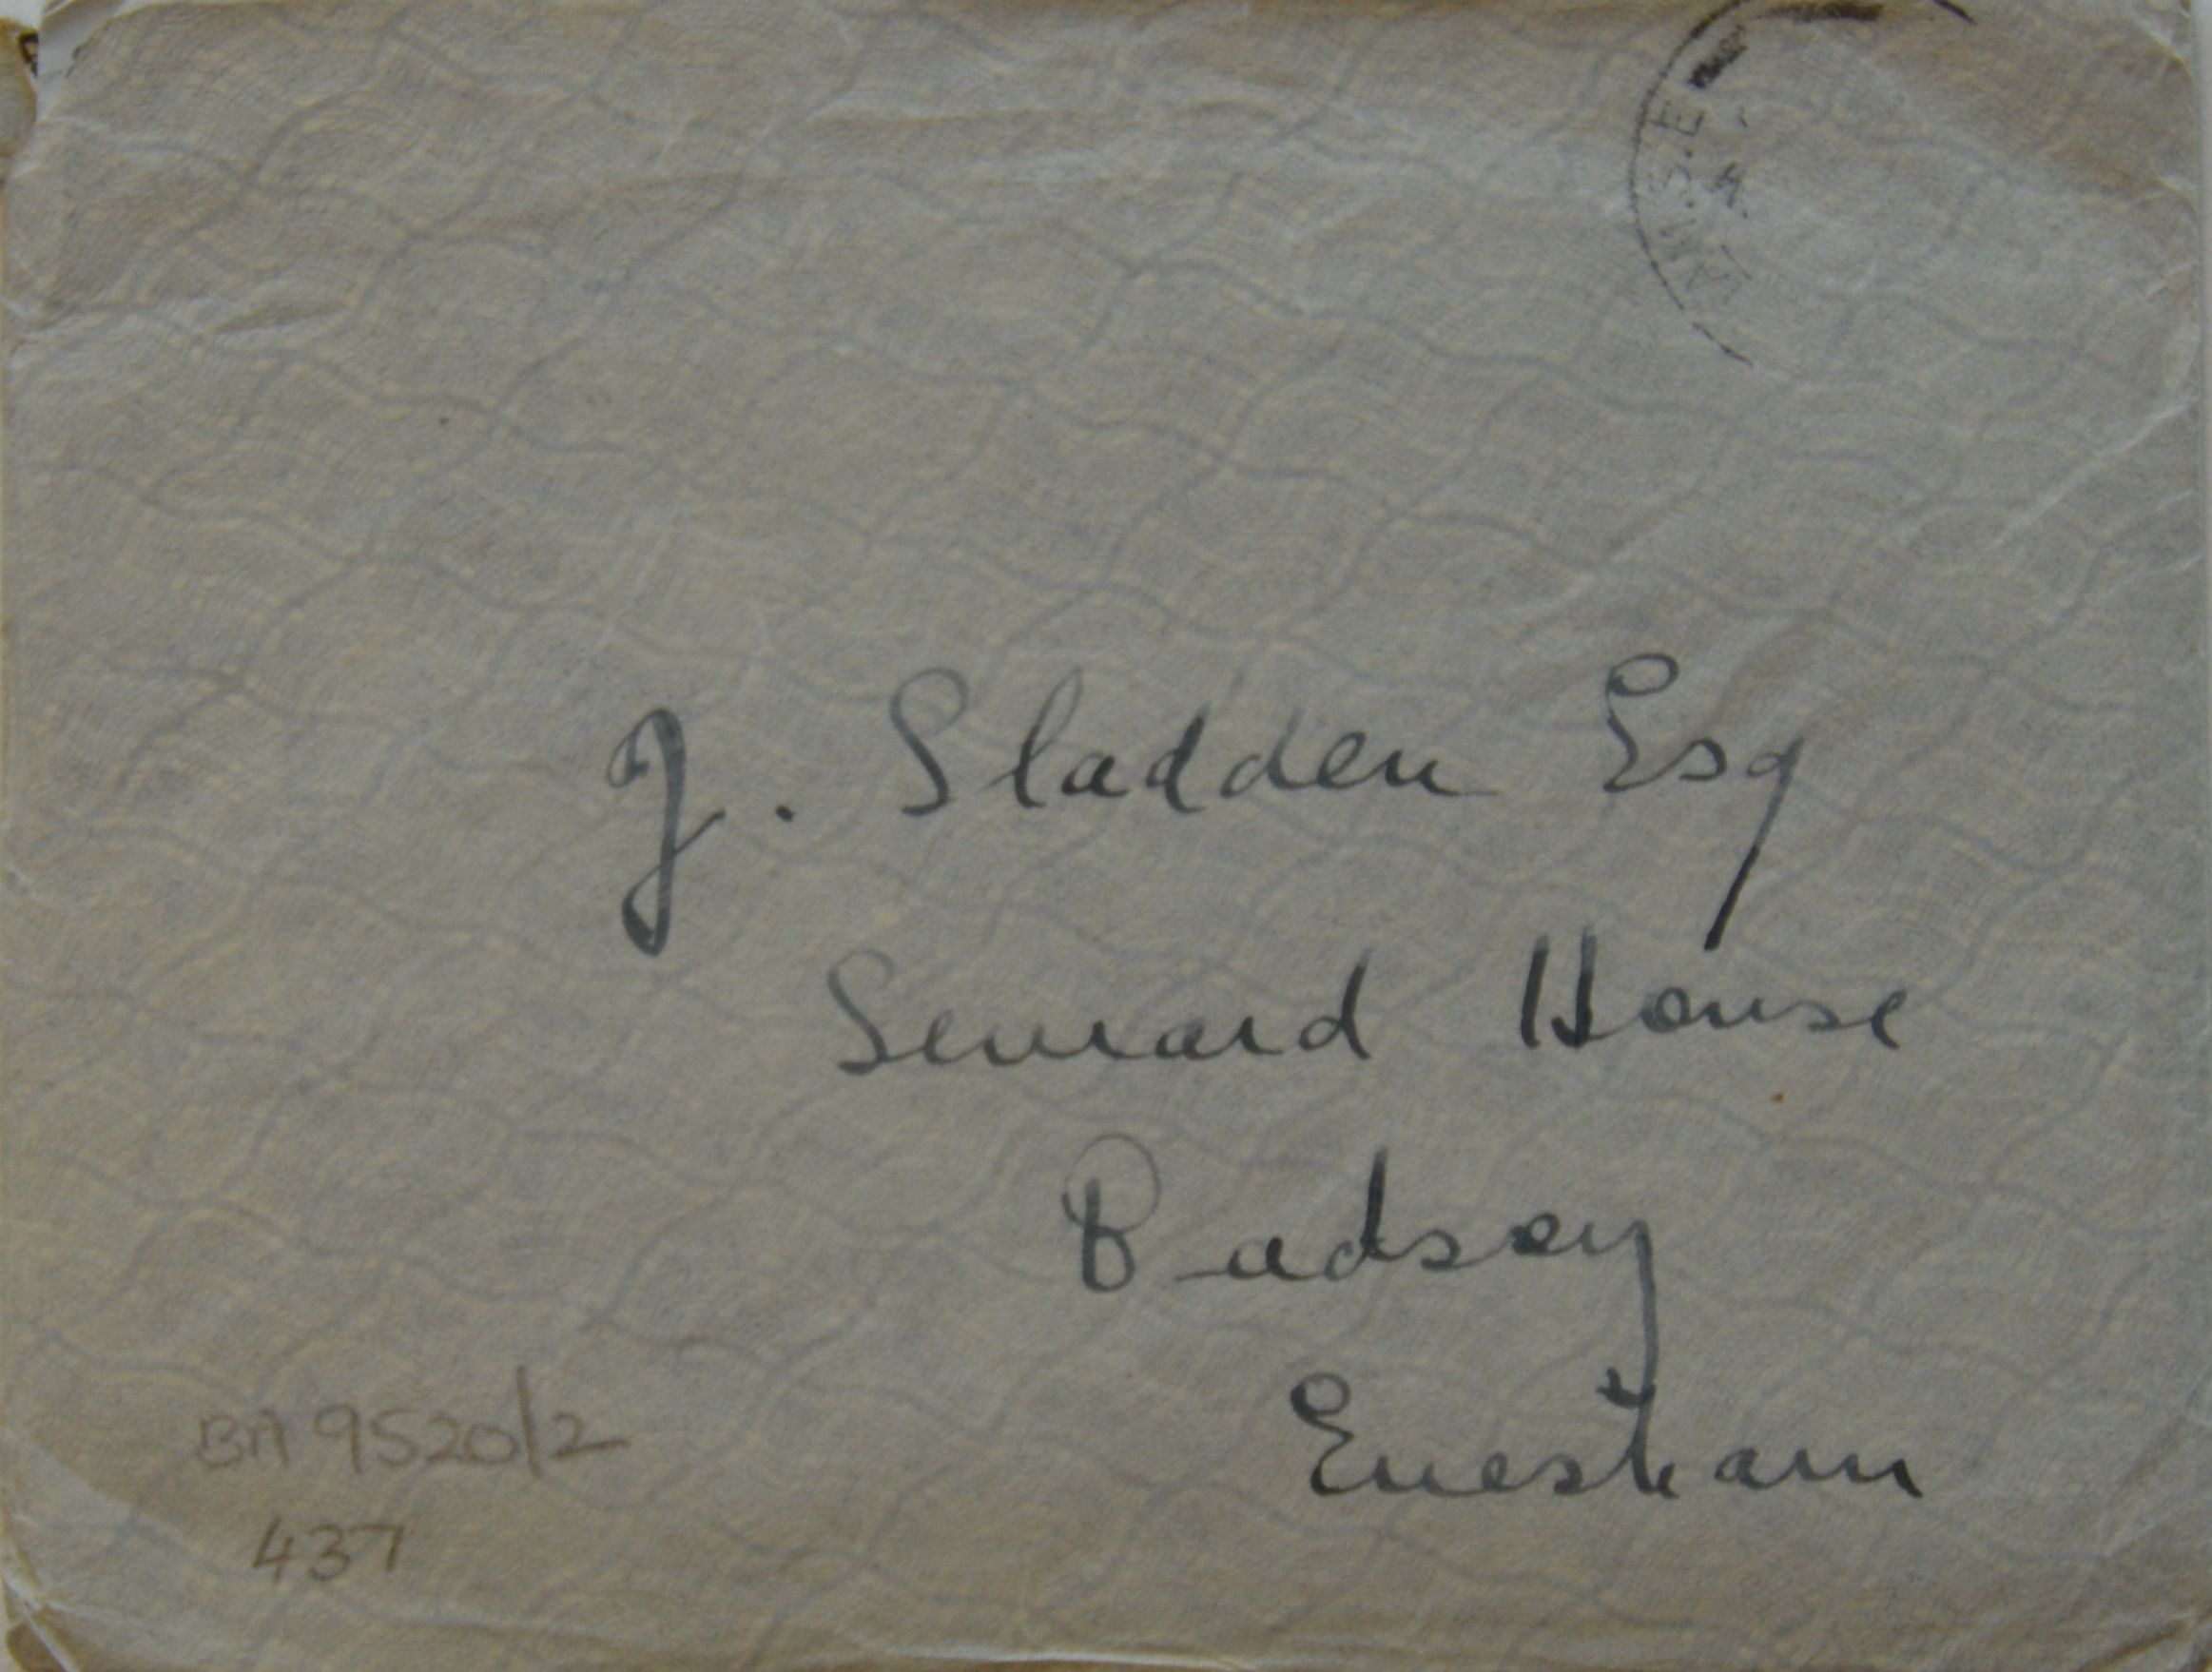 J. Sladden Esq
Seward House
Badsey
Evesham
BA 9520/2
437